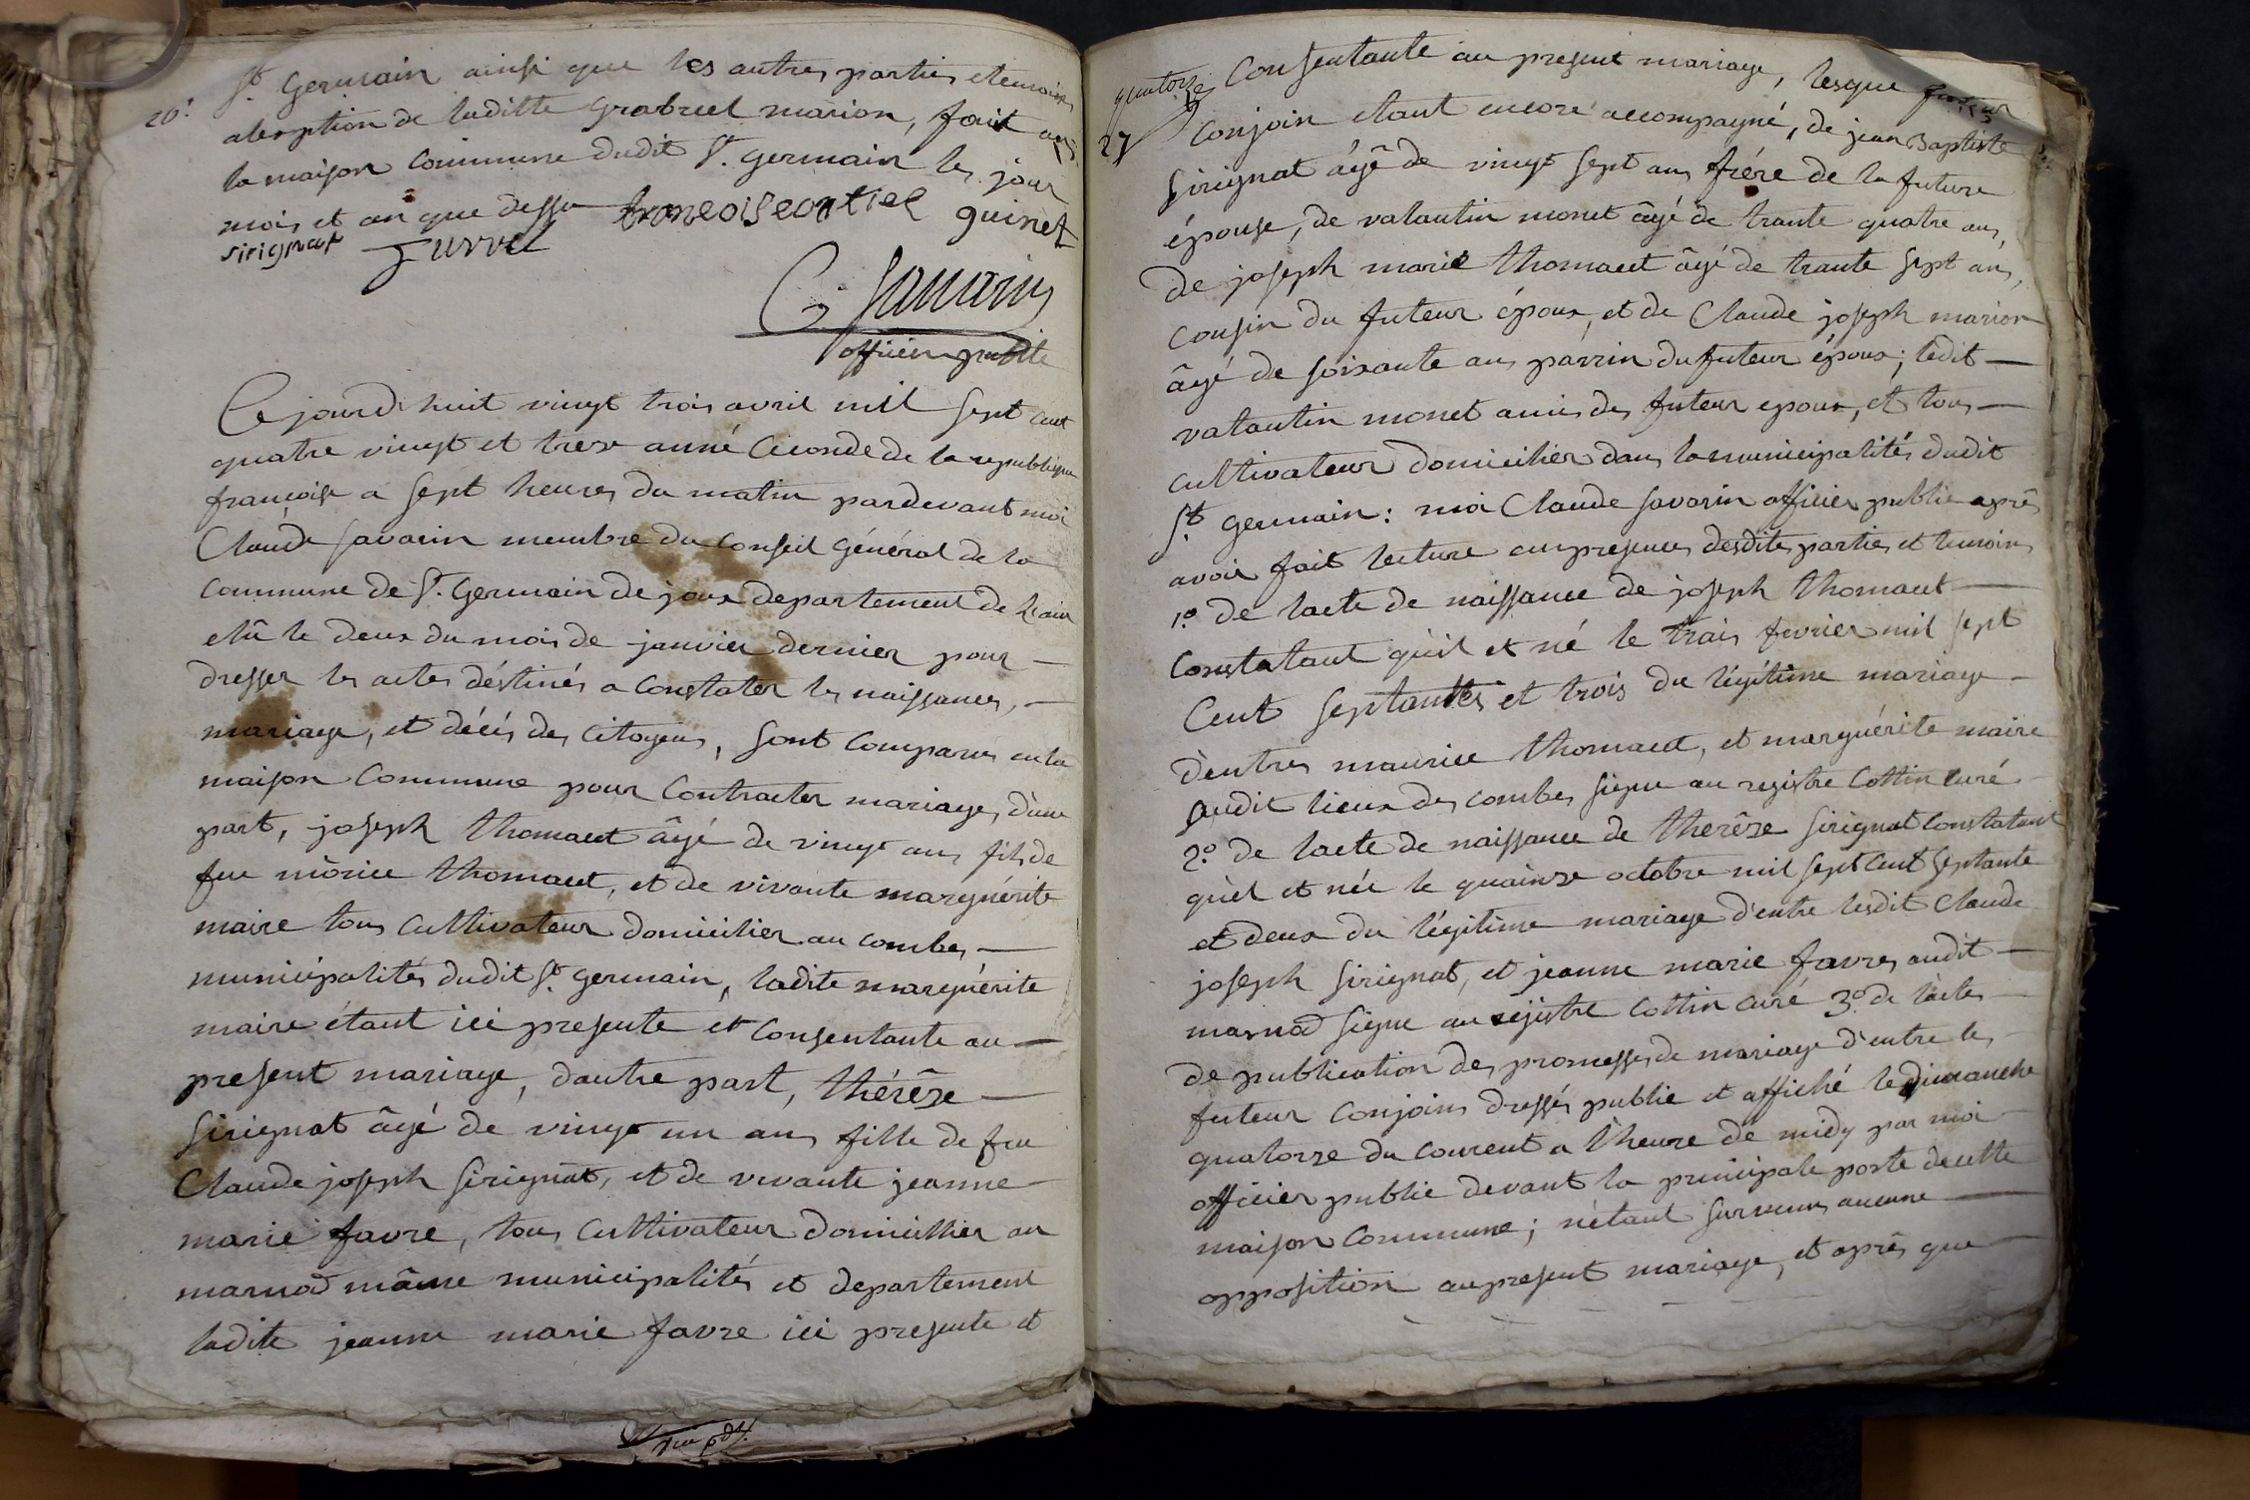 26.
St. Germain ainsi que les autres parties et temoins
abexption de laditte Grabriel marion, fait en
la maison Commune dudit St. germain les jour
mois et an que dessu francoiseontier guinet
sirignat Jurrel
C. Savarin
officier public
Ce jourd huit vingt trois avril mil sept cent
quatre vingt et treze année Ciconde de la republique
françoise a sept heures du matin pardevant moi
Claude savarin membre du Conseil Général de la
Commune de St. Germain de joux departement de l'ain
elû le deux du mois de janvier dernier pour —
dresser les actes déstinés a Constater les naissances, —
mariage, et décés des Citoyens, sont Comparus en la
maison Commune pour Contracter mariage, d'une
part, joseph thomaut âgé de vingt ans fils de
feu mòrice thomaut, et de vivante marguérite
maire tous Cultivateur domicilier au combes —
municipalités dudit St. germain, ladite marguérite
maire étant ici presente et Consentante au —
present mariage, dautre part, thérêze —
sirignat âgé de vingt un ans fille de feu
Claude joseph sirignat, et de vivante jeanne
marie favre, tous Cultivateur domicillier au
marnod même municipalités et departement
ladite jeanne marie favre ici presente et
quatorze
27
Consentante au present mariage, lesque futeur
Conjoin etant encore accompagné, de jean Baptiste
sirignat âgê de vingt sept ans frére de la future
épouse, de valantin monet âgé de trante quatre ans,
de joseph marie thomaut âgé de trante sept ans,
Cousin du futeur époux, et de Claude joseph marion
âgé de soixante ans parrin du futeur époux; ledit —
valantin monet amis des futeur epoux, et tous —
Cultivateur domicilier dans la municipalités dudit
St. germain: moi Claude savarin officier public aprês
avoir fait lecture en presences desdites parties et temoins
1.º de lacte de naissance de joseph thomaut —
Constatant qu'il et né le trois fevrier mil sept
Cent septantes et trois du légitime mariage —
d'entres maurice thomaut, et marguérite maire
audit lieux des combes signe au registre Cottin curé
2.º de lacte de naissance de therêze sirignat Constatant
qu'el et née le quainze octobre mil sept Cent septante
et deux du légitime mariage d'entre lesdit Claude
joseph sirignat, et jeanne marie favres audit —
marnod signe au rejistre Cottin curé 3.º de lacte —
de publication des promesses de mariage d'entre les
futeur Conjoins dressés publie et affiché le dimanche
quatorze du courent a l'heure de midy par moi
officier public devant la principale porte de cette
maison Commune; n'étant survenus aucune —
opposition au present mariage, et aprês que